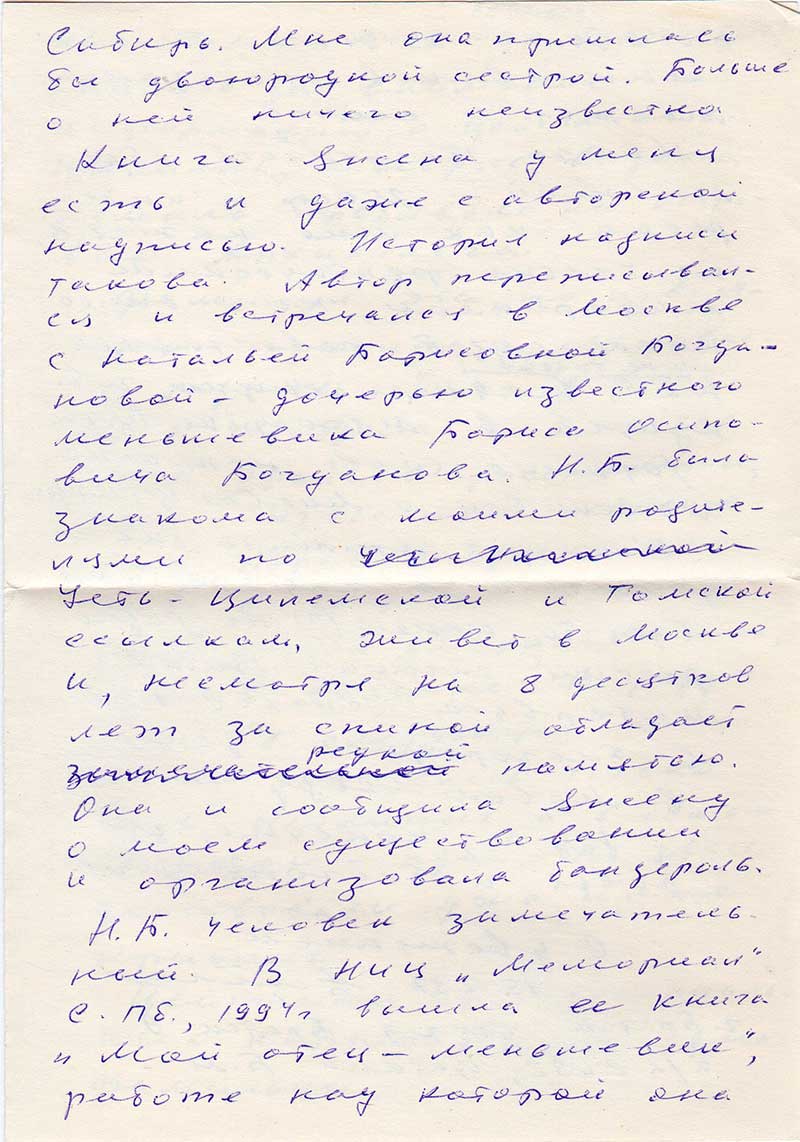 Сибирь. Мне она пришлась
бы двоюродной сестрой. Больше
о ней ничего неизвестно
Книга Янсена у меня
есть и даже с авторской
надписью. История надписи
такова. Автор переписывал-
ся и встречался в Москве
с Натальей Борисовной Богда-
новой – дочерью известного
меньшевика Бориса Осипо-
вича Богданова. Н.Б. была
знакома с моими родите-
лями по
Усть-Цилемской и Томской
ссылкам, живет в Москве
и, несмотря на 8 десятков
лет за спиной обладает
замечательной редкой памятью.
Она и сообщила Янсену
о моем существовании
и организовала бандероль.
Н.Б. человек замечатель-
ный. В НИЦ „Мемориал“
С.Пб., 1994г вышла ее книга
„Мой отец – меньшевик“,
работе над которой она